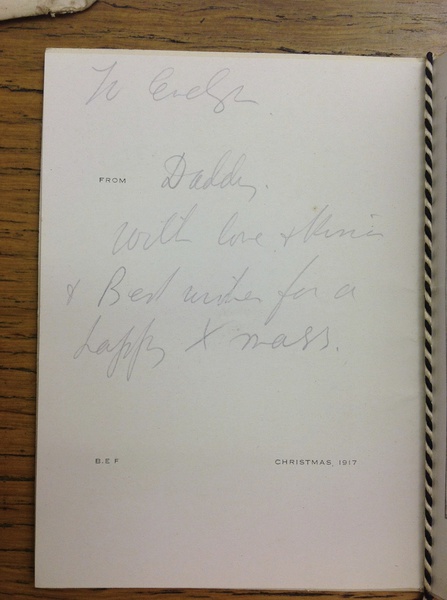 To Evelyn
FROM Daddy.
with love & kisses
& Best wishes for a
happy Xmass.
B.E F
CHRISTMAS, 1917